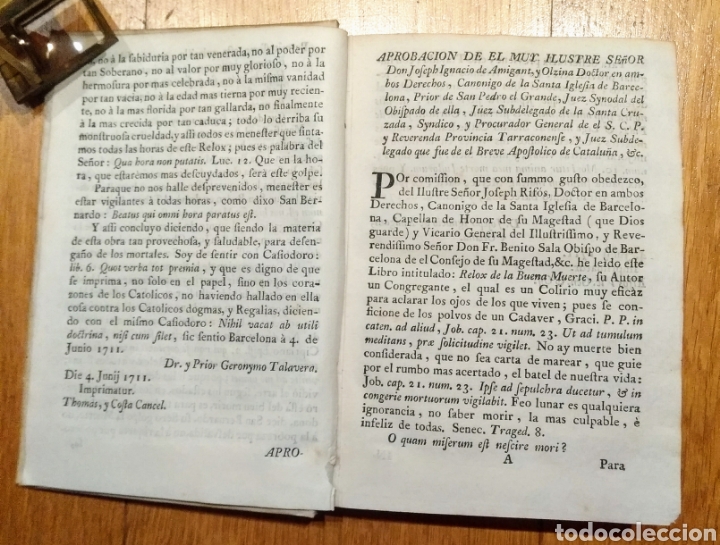 no à la sabiduria por tan venerada, no al poder por
tan Soberano, no al valor por muy glorioso, no à la
hermosura por mas celebrada, no à la misma vanidad
por tan vacia, no à la edad mas tierna por muy recien-
te, no à la mas florida por tan gallarda, no finalmente
à la mas crecida por tan caduca; todo lo derriba su
monstruosa crueldad, y assi todos es menester que sinta-
mos todas las horas de este Relox; pues es palabra del
Señor: Qua hora non putatis. Luc. 12. Que en la hora,
que estaremos mas descuydados, serà este golpe.
Paraque no nos halle desprevenidos, menester es
estar vigilantes à todas horas, como dixo San Ber-
nardo: Beatus qui omni hora paratus est.
Y assi concluyo diciendo, que siendo la materia
de esta obra tan provechosa, y saludable, para desen-
gaño de los mortales. Soy de sentir con Casiodoro:
lib. 6. Quot verba tot premia, y que es digno de que
se imprima, no solo en el papel, sino en los cora-
zones de los Catolicos, no haviendo hallado en ella
cosa contra los Catolicos dogmas, y Regalias, diciendo
con el mismo Casiodoro: Nihil vacat ab utili
doctrina, nisi cum silet, sic sentio Barcelona à 4. de
Junio 1711.
Dr. y Prior Geronymo Talavera.
Die 4. Junij 1711.
Imprimatur.
Thomas, y Costa Cancel.
APRO-
APROBACION DE EL MUY ILUSTRE SEñOR
Don Joseph Ignacio de Amigant, y Olzina Doctor en am-
bos Derechos, Canonigo de la Santa Iglesia de Barce-
lona, Prior de San Pedro el Grande, Juez Synodal del
Obispado de ella, Juez Subdelegado de la Santa Cru-
zada, Syndico, y Procurador General de el S. C. P.
y Reverenda Provincia Tarraconense, y Juez Subde-
legado que fue de el Breve Apostolico de Cataluña, &c.
POr comission, que con summo gusto obedezco,
del Ilustre Señor Joseph Rifòs, Doctor en ambos
Derechos, Canonigo de la Santa Iglesia de Barcelo-
na, Capellan de Honor de su Magestad (que Dios
guarde) y Vicario General del Illustrissimo, y Reve-
rendissimo Señor Don Fr. Benito Sala Obispo de Bar-
celona de el Consejo de su Magestad, &c. he leido este
Libro intitulado: Relox de la Buena Muerte, su Autor
un Congregante, el qual es un Colirio muy eficàz
para aclarar los ojos de los que viven; pues se con-
ficione de los polvos de un Cadaver, Graci. P. P. in
caten. ad aliud, Job. cap. 21. num. 23. Ut ad tumulum
meditans, præ solicitudine vigilet. No ay muerte bien
considerada, que no sea carta de marear, que guie
por el rumbo mas acertado, el batel de nuestra vida:
Job. cap. 21. num. 23. Ipse ad sepulchra ducetur, & in
congerie mortuorum vigilabit. Feo lunar es qualquiera
ignorancia, no saber morir, la mas culpable, è
infeliz de todas. Senec. Traged. 8.
O quam miserum est nescire mori?
A Para
todocoleccion